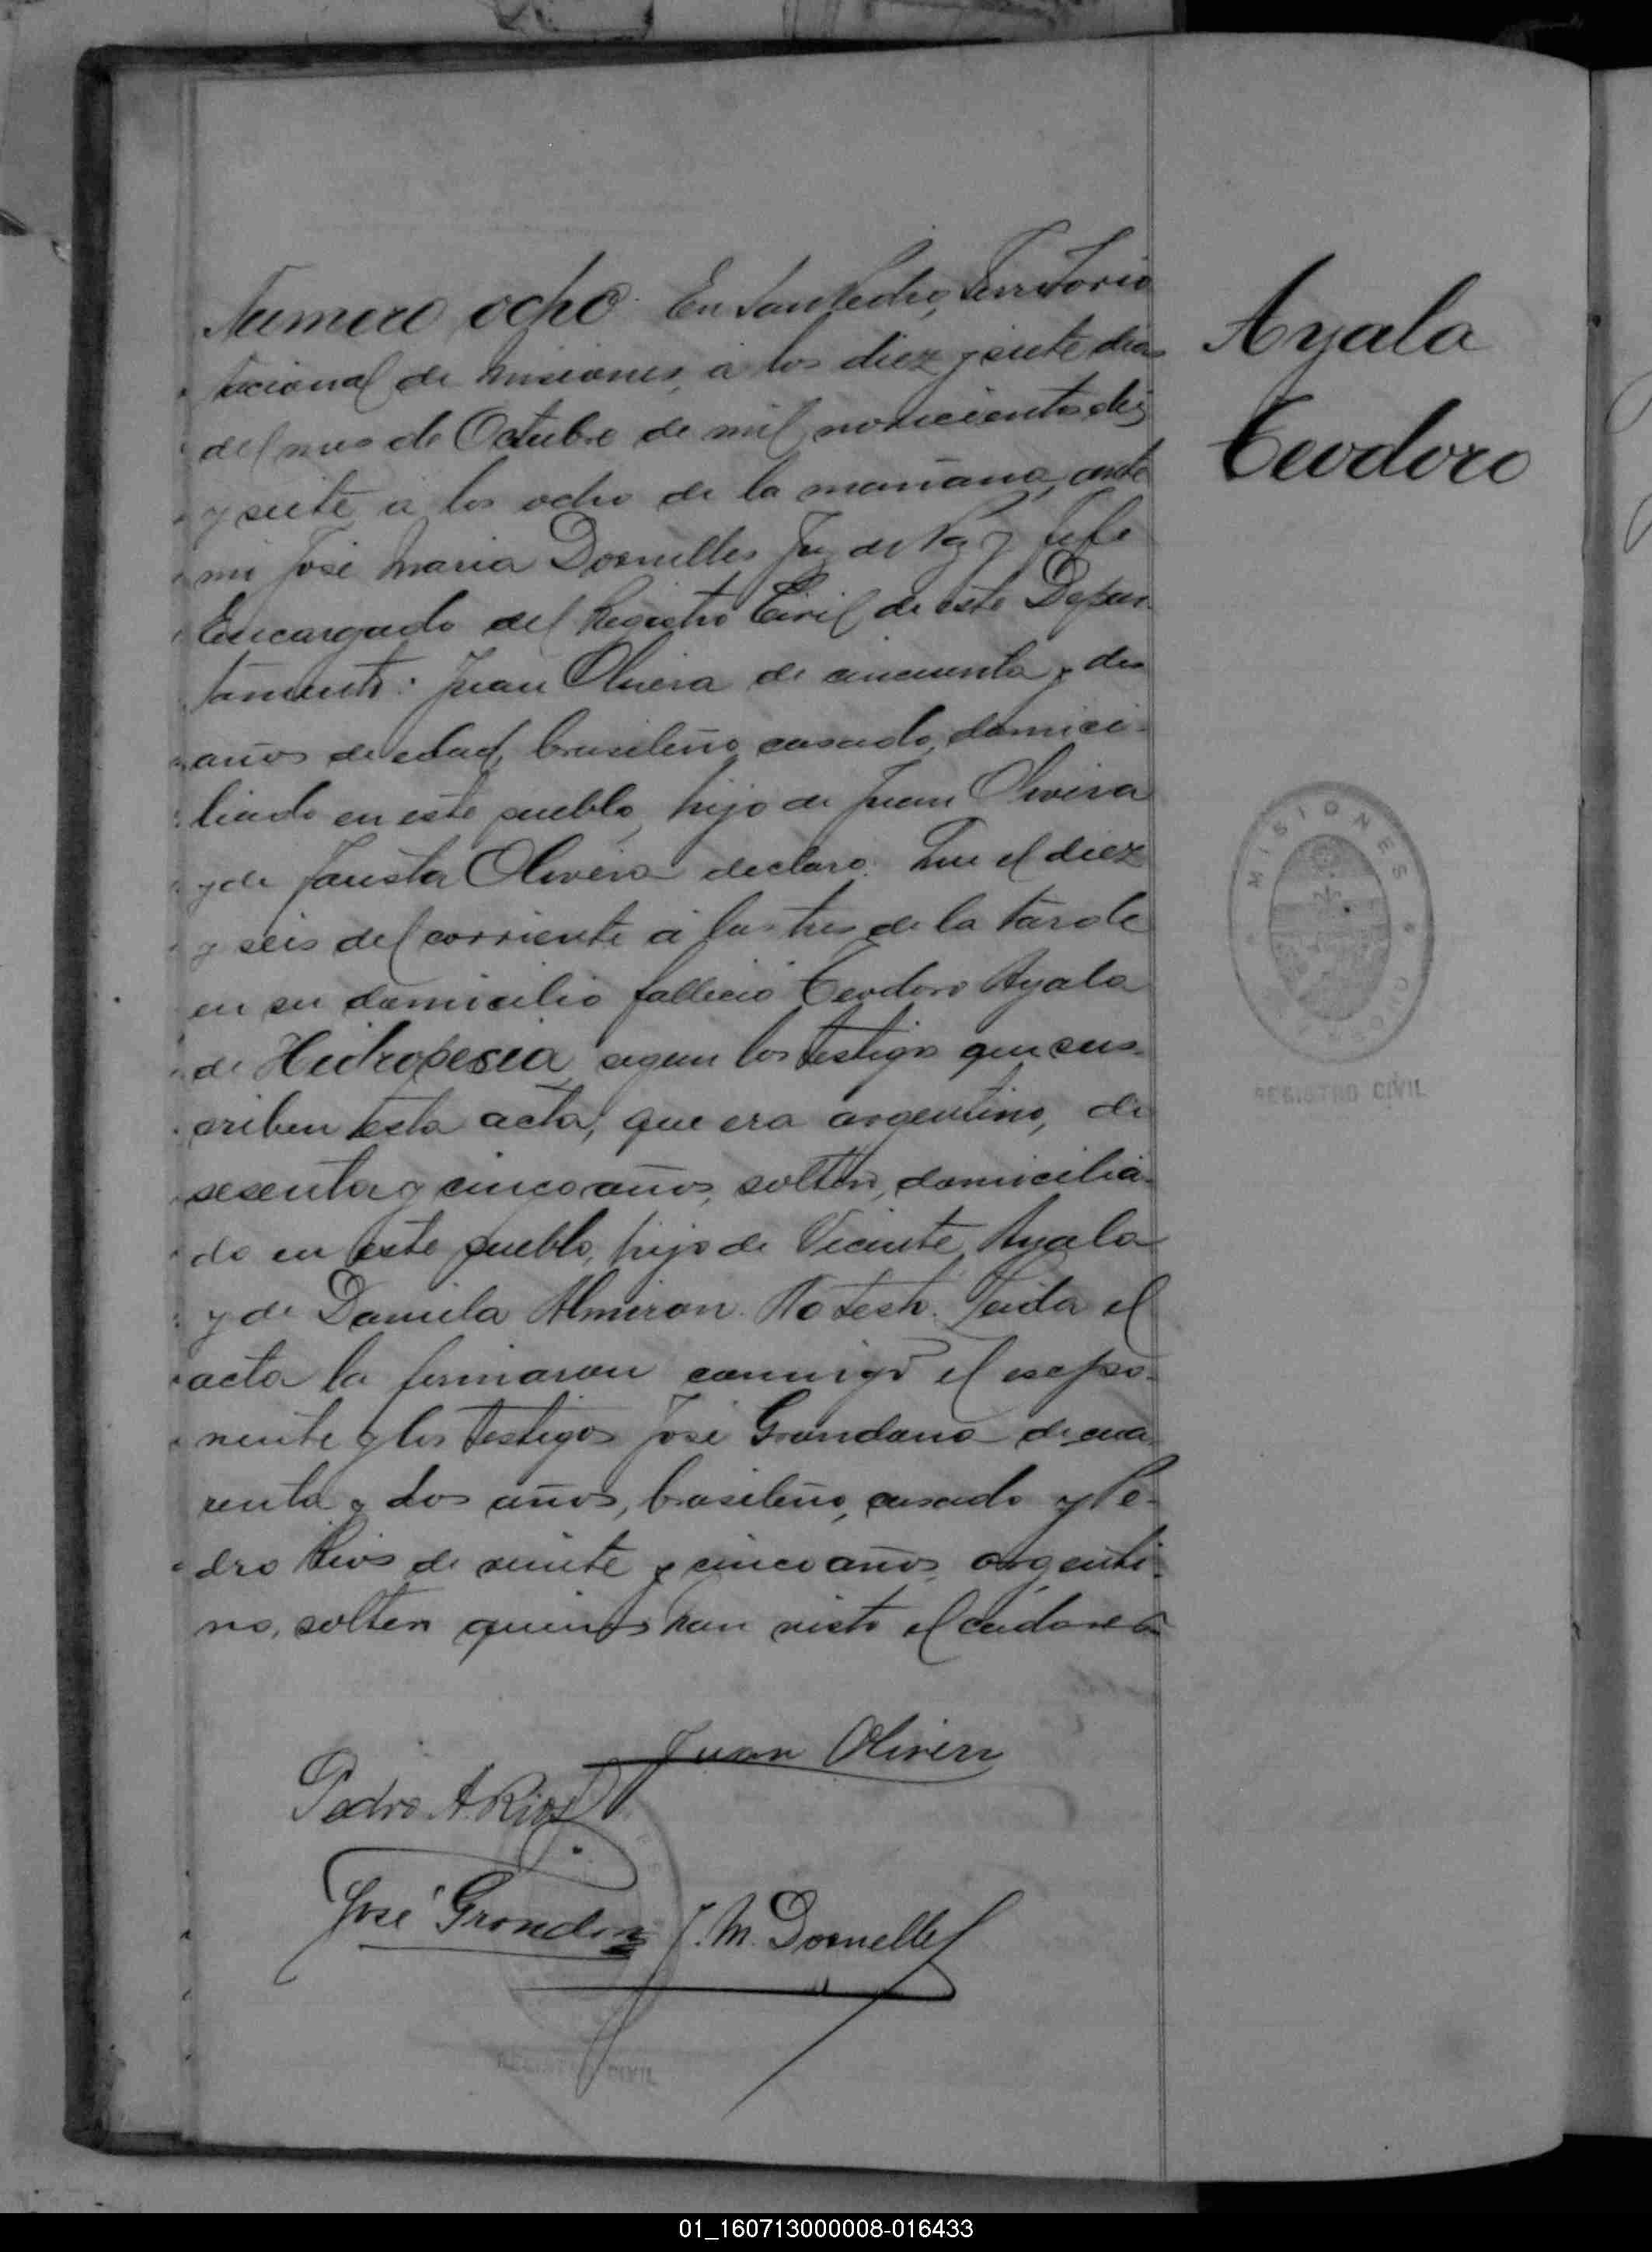 Numero ocho. En San Pedro, Territorio
Nacional de Misiones, á los diez y siete dias
del mes de Octubre de mil novecientos diez
y siete á las ocho de la mañana, ante
mi José Maria Dornelles Juez de Paz y Jefe
Encargado del Registro Civil de este Depar-
tamento: Juan Olivera de cincuenta y dos
años de edad, brasileño, casado, domici-
liado en este pueblo, hijo de Juan Olivera
y de Fausta Olivera declaró: Que el diez
y seis del corriente á las tres de la tarde
en su domicilio falleció Teodoro Ayala
de Hidropesia, segun los testigos que sus-
criben esta acta, que era argentino, de
sesenta y cinco años, soltero, domicilia-
do en este pueblo, hijo de Vicente Ayala
y de Daniela Almiron. No testó. Leida el
acta la firmaron conmigo el expo-
nente y los testigos José Grondona de cua-
renta y dos años, brasileño, casado y Pe-
dro Rios de veinte y cinco años, argenti-
no, soltero quienes han visto el cadaver
Juan Olivera
Pedro A. Rios
José Grondona J. M. Dornelles
REGISTRO CIVIL
Ayala
Teodoro
MISIONES
REGISTRO CIVIL
01_160713000008-016433